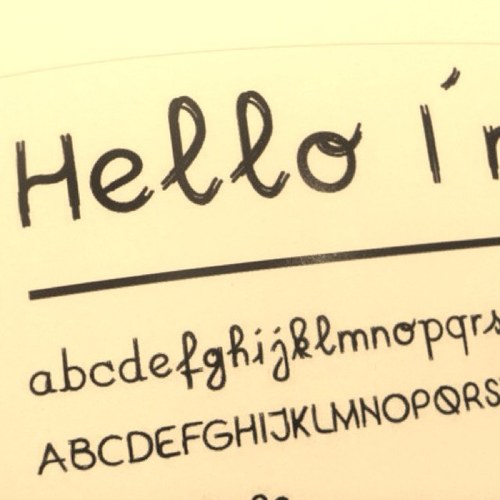 Hello I'
abcdefghijklmnopqrs
ABCDEFGHIJKLMNOPQRS